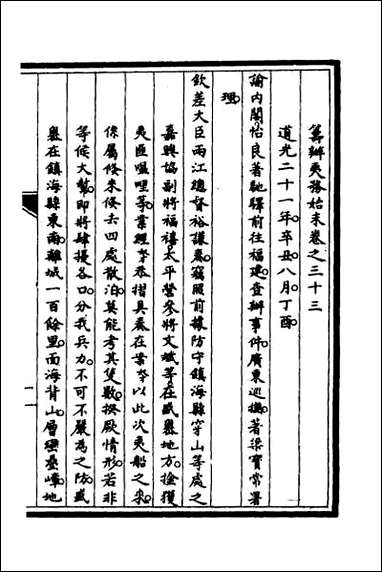 籌辦夷務始末卷之三十三
道光二十一年辛丑八月丁酉
諭內閣怡良著馳驛前往福建查辦事件廣東巡撫著梁寶常署
理
欽差大臣兩江總督裕謙奏竊照前據防守鎮海縣穿山等處之
嘉興協副將福禧太平營參將文斌等在盛嶴地方捦獲
夷匪嗢哩等業經李恭摺具奏在案李以此次夷船之來
係屬倏來倏去四處散泊莫能考其隻數揆厥情形若非
等候大幫即將肆擾各口分我兵力不可不嚴為之防盛
嶴在鎮海縣東南離城一百餘里面海背山層巒疊嶂地
一